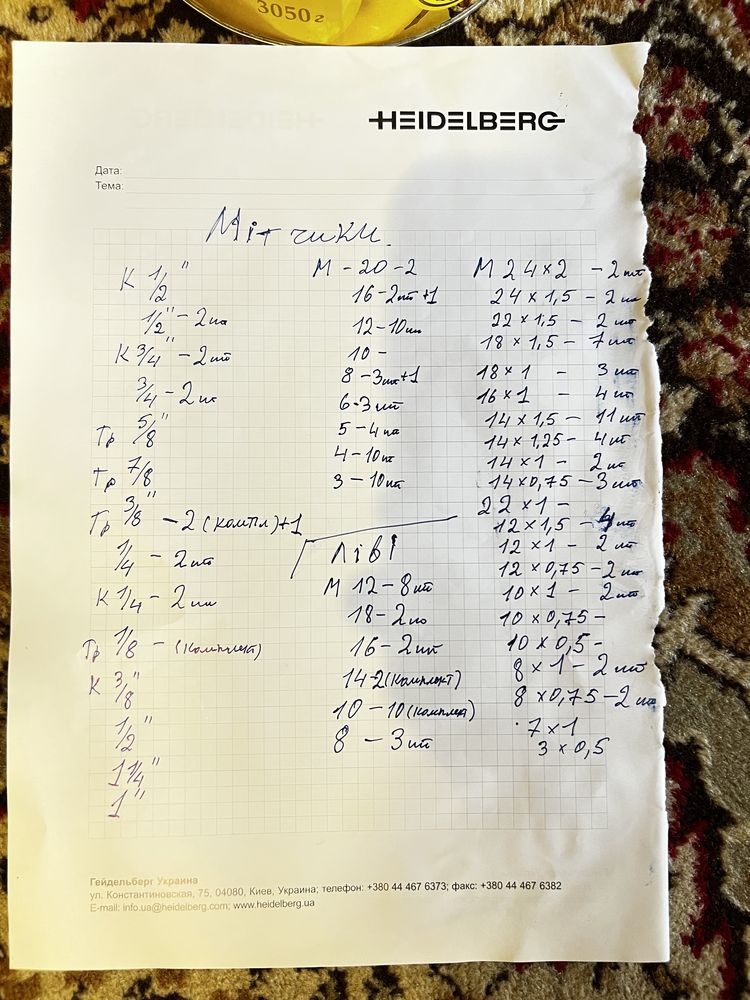 3050 г
HEIDELBERG
Дата:
Тема:
Мітчики.
К 1/2"
1/2" - 2шт
К 3/4" - 2шт
3/4 - 2шт
Тр 5/8"
Тр 7/8
Тр 3/8" - 2 (компл) + 1
1/4 - 2шт
К 1/4 - 2шт
Тр 1/8 - (комплект)
К 3/8"
1/2"
1 1/4"
1"
М - 20 - 2
16 - 2шт + 1
12 - 10шт
10 -
8 - 3шт + 1
6 - 3шт
5 - 4шт
4 - 10шт
3 - 10шт
Ліві
М 12 - 8шт
18 - 2шт
16 - 2шт
14 - 2 (комплект)
10 - 10 (комплект)
8 - 3шт
М 24 × 2 - 2шт
24 × 1,5 - 2шт
22 × 1,5 - 2шт
18 × 1,5 - 7шт
18 × 1 - 3шт
16 × 1 - 4шт
14 × 1,5 - 11шт
14 × 1,25 - 4шт
14 × 1 - 2шт
14 × 0,75 - 3шт
22 × 1 -
12 × 1,5 - 4шт
12 × 1 - 2шт
12 × 0,75 - 2шт
10 × 1 - 2шт
10 × 0,75 -
10 × 0,5 -
8 × 1 - 2шт
8 × 0,75 - 2шт
7 × 1
3 × 0,5
Гейдельберг Украина
ул. Константиновская, 75, 04080, Киев, Украина; телефон: +380 44 467 6373; факс: +380 44 467 6382
E-mail: info.ua@heidelberg.com; www.heidelberg.ua